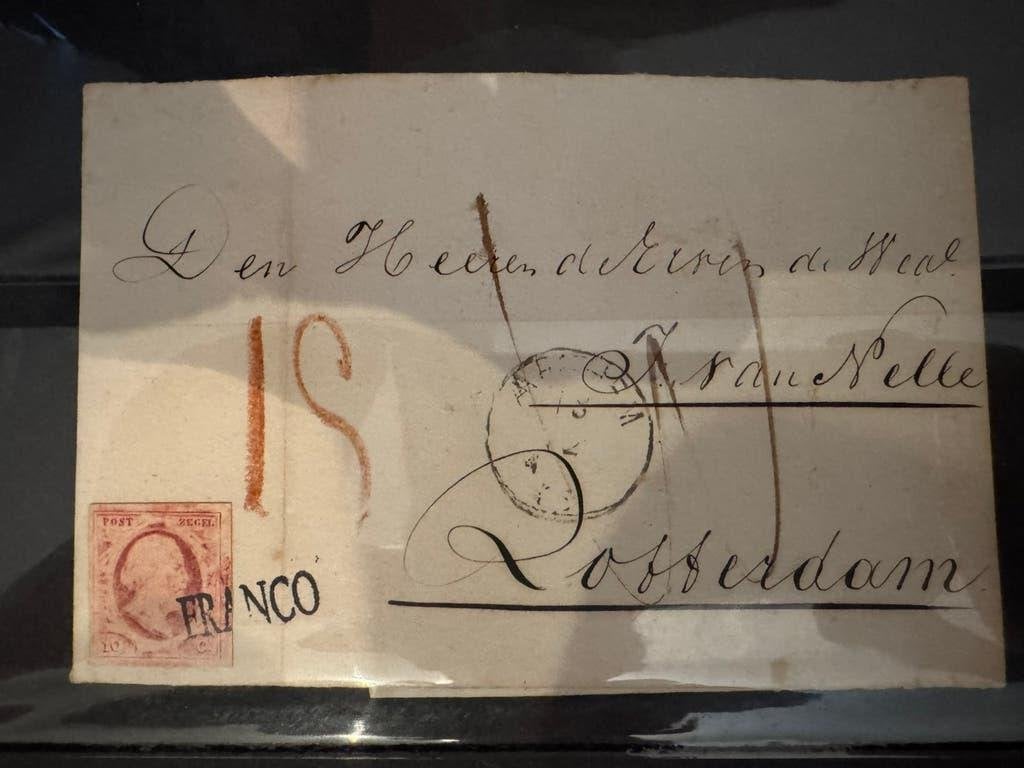 Den Heeren de Erven de Wed.
J. van Nelle
Rotterdam
18
POST ZEGEL
10 C.
FRANCO